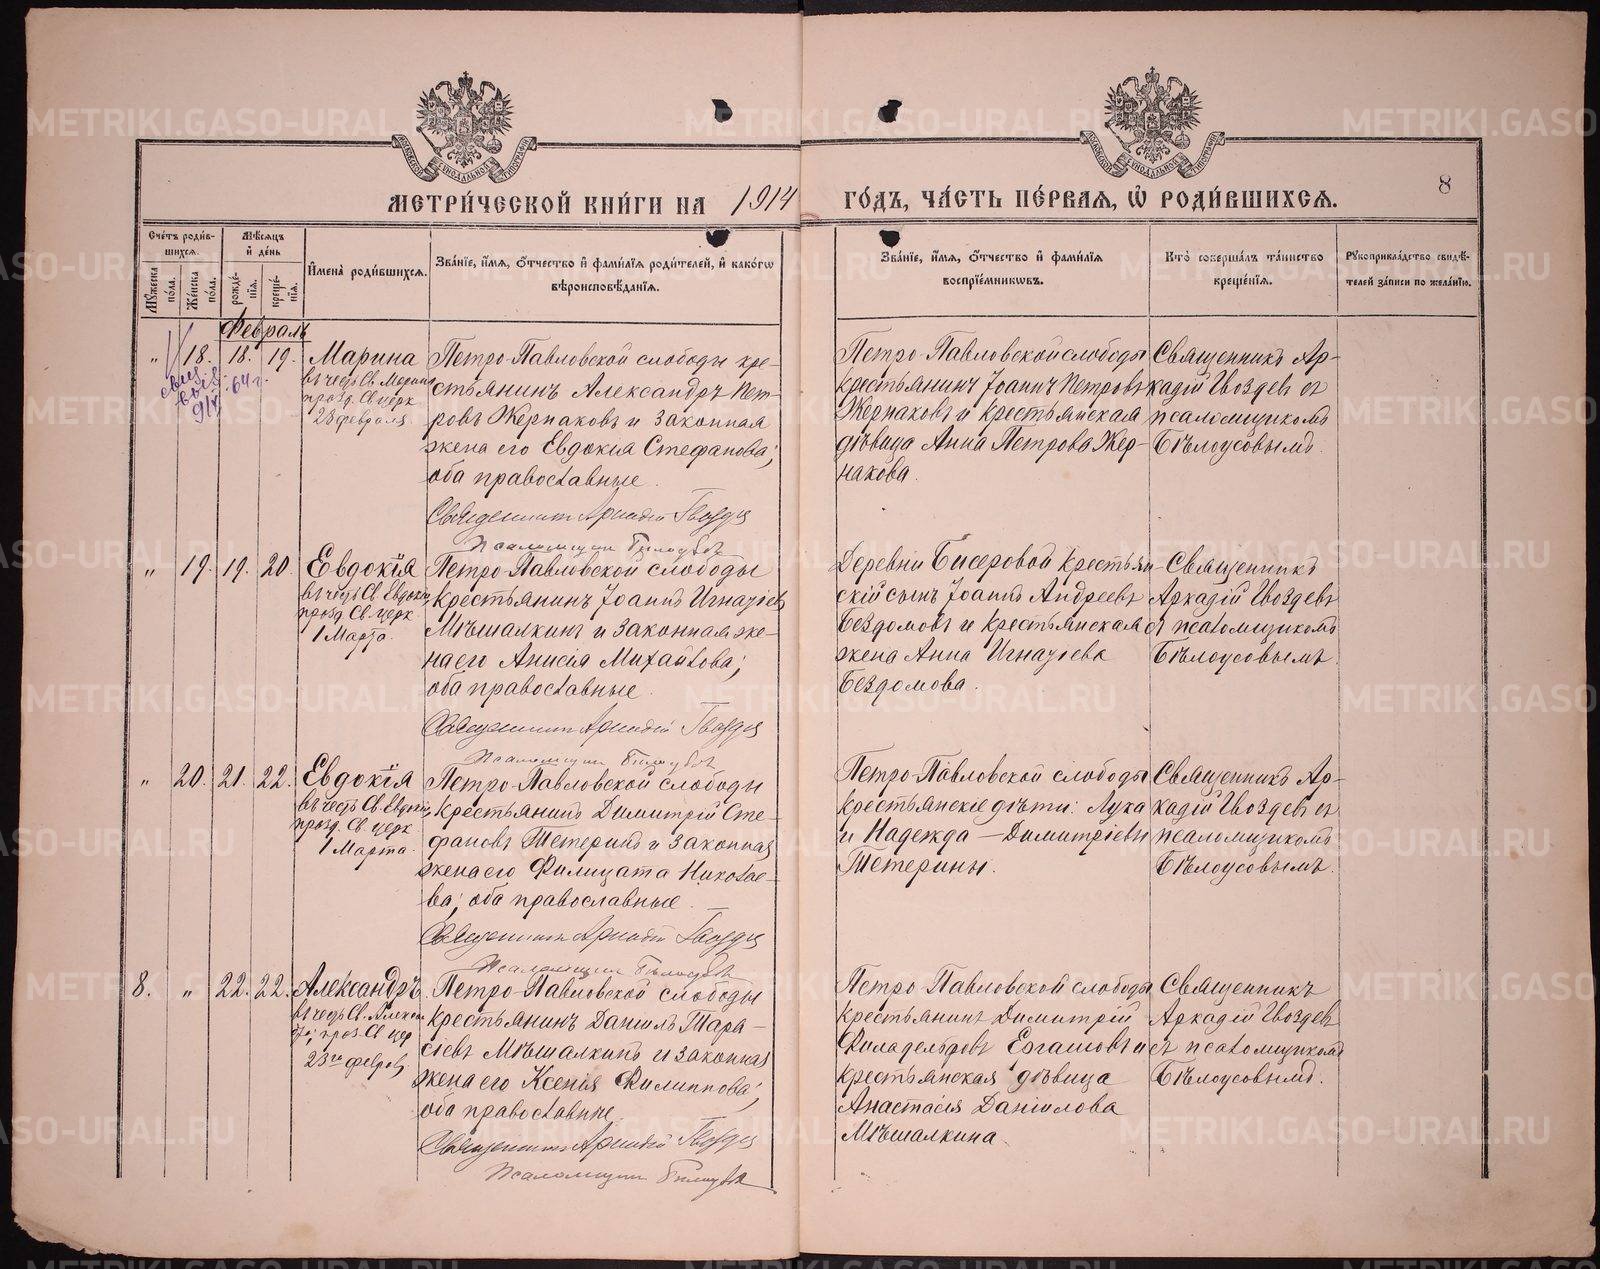 МЕТРИ́ЧЕСКОЙ КНИ́ГИ НА 1914 ГО́ДЪ, ЧА́СТЬ ПЕ́РВАЯ, Ѡ҆ РОДИ́ВШИХСЯ.
8
Сче́тъ роди́в-
шихся.
Мꙋ́жеска
по́ла.
Же́нска
по́ла.
Мѣ́сяцъ
и҆ де́нь
рожде́-
нїя.
креще́-
нїя.
И҆мена̀ роди́вшихся.
Зва́нїе, и҆́мя, ѻ҆́тчество и҆ фами́лїя роди́телей, и҆ како́гѡ
вѣроисповѣ́данїя.
Зва́нїе, и҆́мя, ѻ҆́тчество и҆ фами́лїя
воспрїе́мникѡвъ.
Кто̀ соверша́лъ та́инство
креще́нїя.
Рꙋкоприкла́дство свидѣ́-
телей за́писи по жела́нїю.
Февраль
" 18. 18. 19.
Марина
въ честь Св. Марины
празд. Св. церк
28 февраля.
64 г.
Петро-Павловской слободы кре-
стьянинъ Александръ Пет-
ровъ Жернаковъ и законная
жена его Евдокія Стефанова;
оба православные.
Священникъ Аркадій Гвоздев
Псаломщик Белоусов
Петро-Павловской слободы
крестьянинъ Іоаннъ Петровъ
Жернаковъ и крестьянская
дѣвица Анна Петрова Жер-
накова.
Священникъ Ар-
кадій Гвоздевъ съ
псаломщикомъ
Бѣлоусовымъ.
" 19. 19. 20.
Евдокія
въ честь Св. Евдокіи,
празд. Св. церк
1 Марта.
Петро-Павловской слободы
крестьянинъ Іоаннъ Игнатіев
Мѣшалкинъ и законная же-
на его Анисія Михайлова;
оба православные.
Священникъ Аркадій Гвоздев
Псаломщик Белоусов
Деревни Бисеровой крестьян-
скій сынъ Іоаннъ Андреевъ
Бездомовъ и крестьянская
жена Анна Игнатіева
Бездомова.
Священникъ
Аркадій Гвоздевъ
съ псаломщикомъ
Бѣлоусовымъ.
" 20. 21. 22.
Евдокія
въ честь Св. Евдокіи,
празд. Св. церк
1 Марта.
Петро-Павловской слободы
крестьянинъ Димитрій Сте-
фановъ Тетеринъ и законная
жена его Филицата Николае-
ва; оба православные.
Священникъ Аркадій Гвоздев
Псаломщик Белоусов
Петро-Павловской слободы
крестьянскіе дѣти: Лука
и Надежда — Димитріевы
Тетерины.
Священникъ Ар-
кадій Гвоздевъ съ
псаломщикомъ
Бѣлоусовымъ.
8. " 22. 22.
Александръ
въ честь Св. Алексан
дра, праз. Св. цер
23го февраля
Петро-Павловской слободы
крестьянинъ Даніилъ Тара-
сіевъ Мѣшалкинъ и законная
жена его Ксенія Филиппова;
оба православные.
Священникъ Аркадій Гвоздев
Псаломщик Белоусов
Петро-Павловской слободы
крестьянинъ Димитрій
Филадельфовъ Елгашовъ и
крестьянская дѣвица
Анастасія Даніилова
Мѣшалкина.
Священникъ
Аркадій Гвоздевъ
съ псаломщикомъ
Бѣлоусовымъ.
METRIKI.GASO-URAL.RU